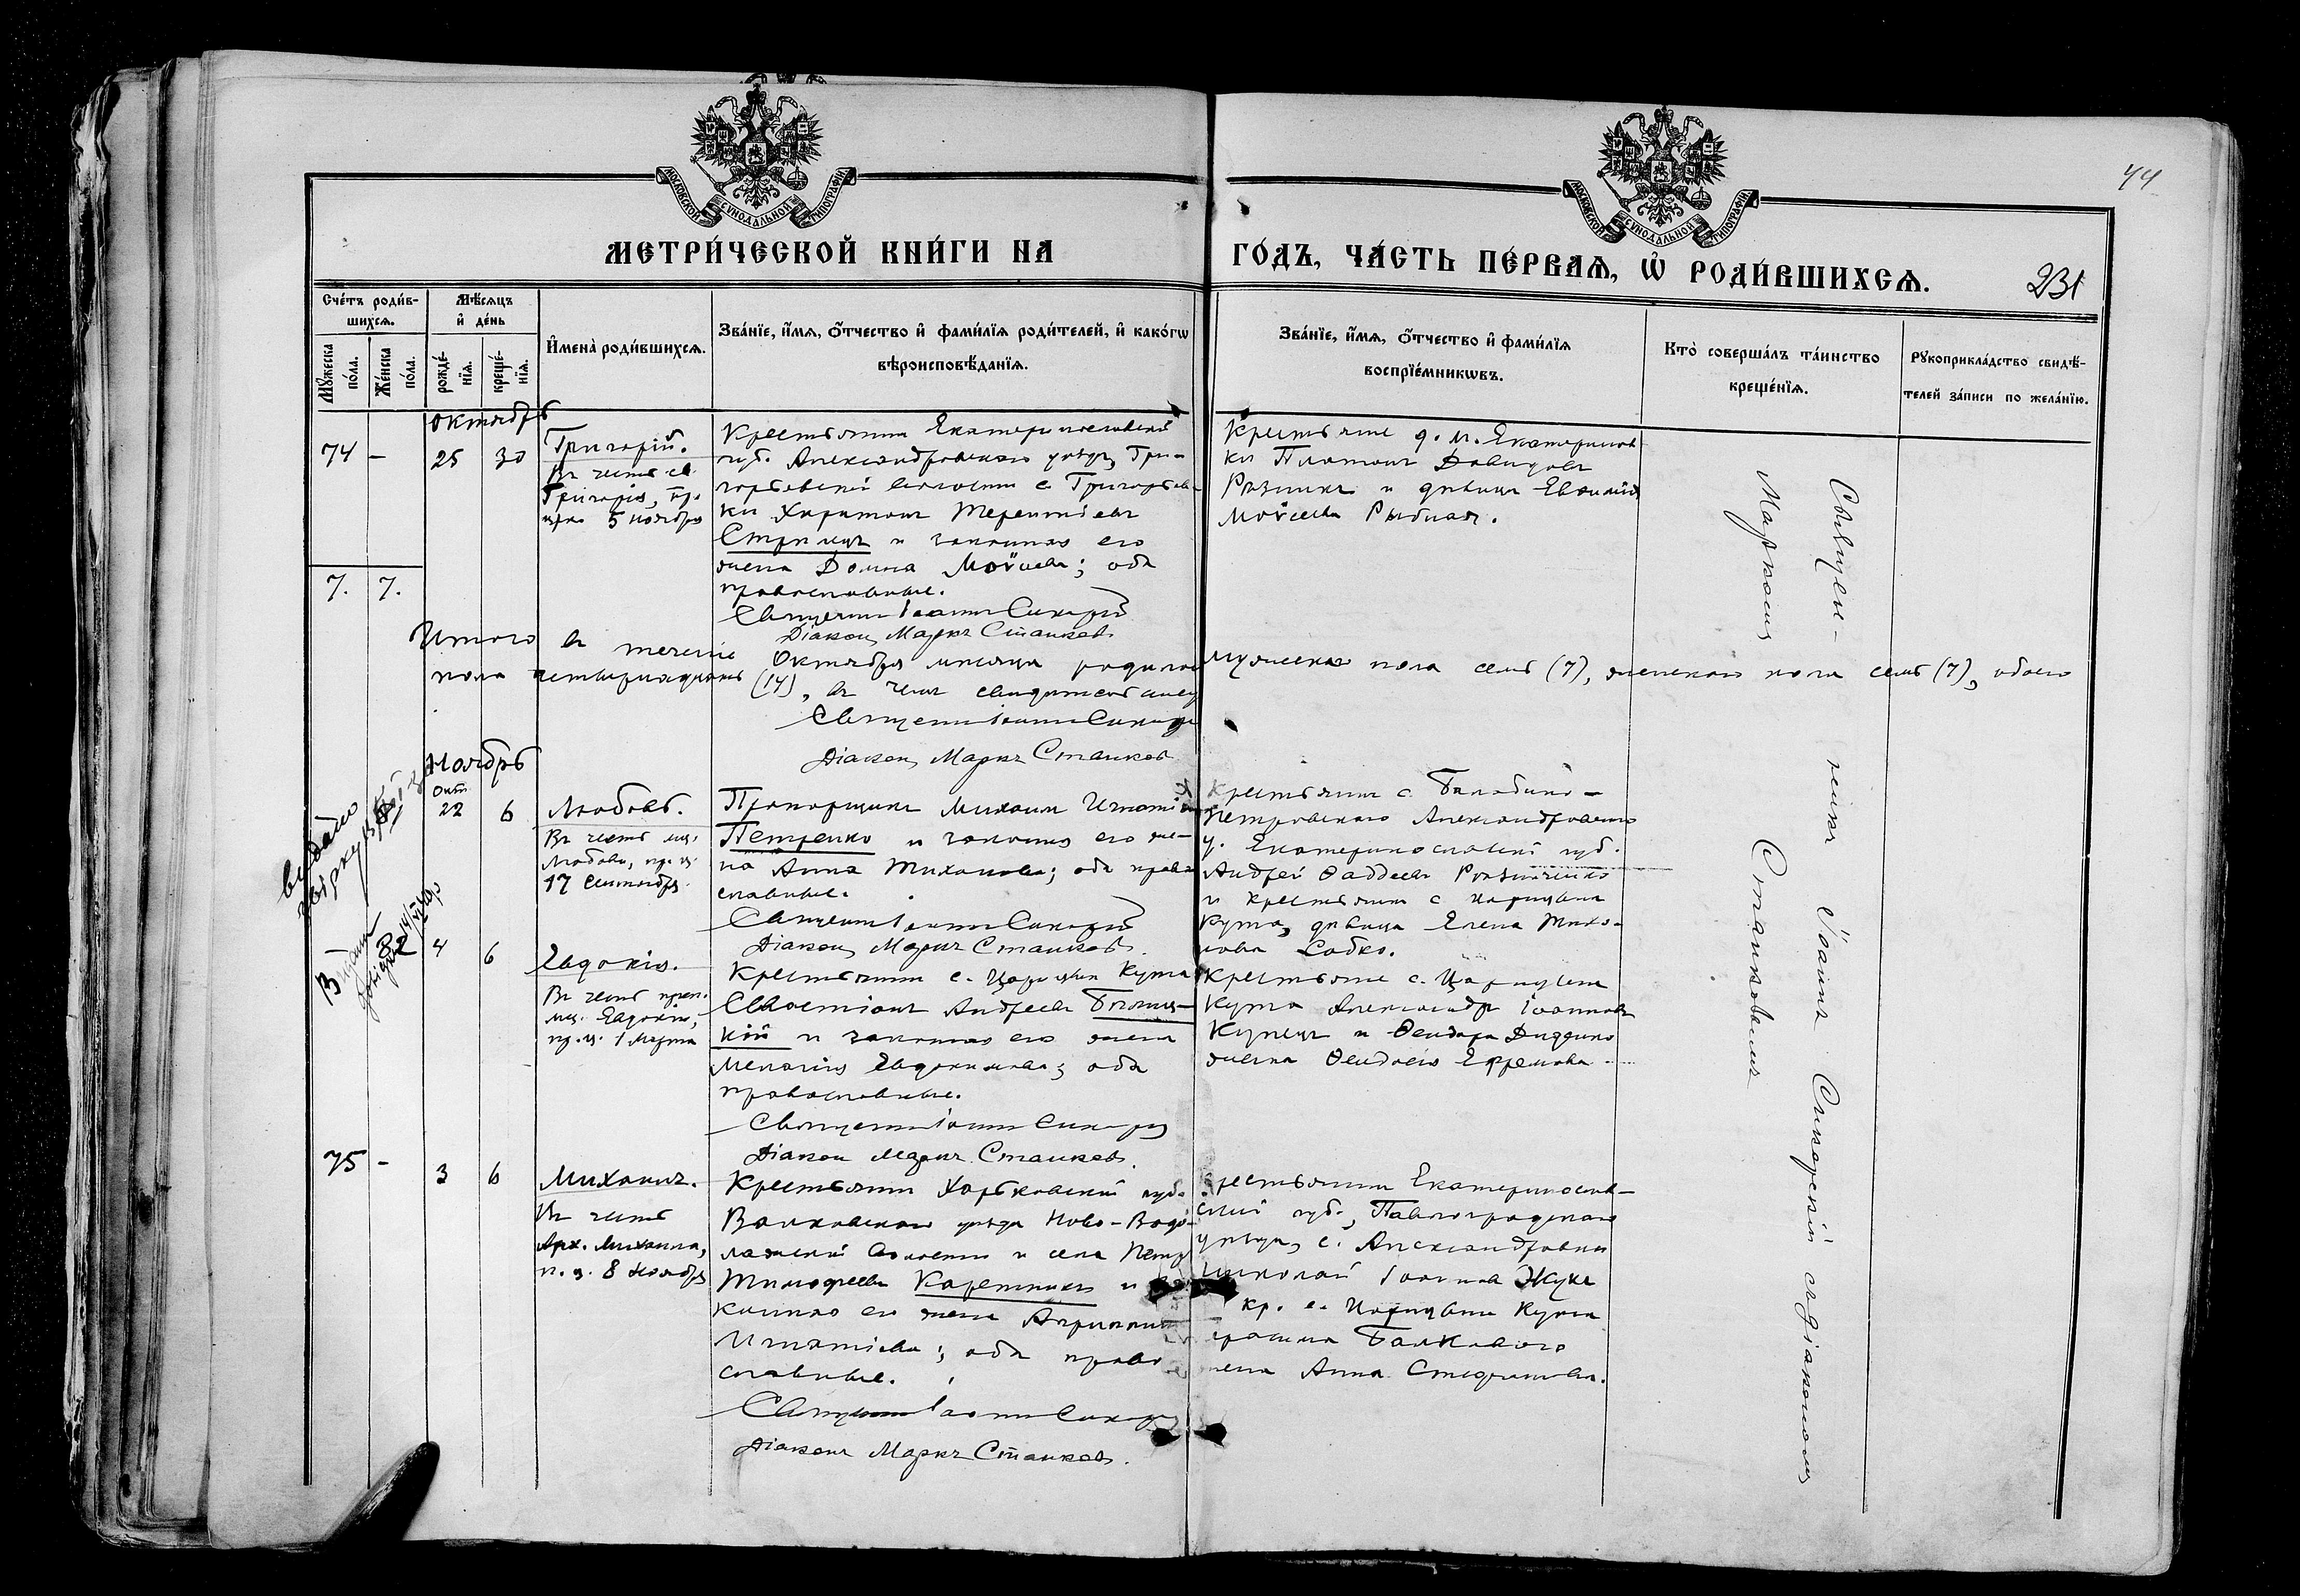 44
МОСКОВСКОЙ СѴНОДАЛЬНОЙ ТИПОГРАФІИ
МОСКОВСКОЙ СѴНОДАЛЬНОЙ ТИПОГРАФІИ
МЕТРИ́ЧЕСКОЙ КНИ́ГИ НА
ГО́ДЪ, ЧА́СТЬ ПЕ́РВАѦ, Ѡ҆ РОДИ́ВШИХСѦ.
231
Сче́тъ роди́в-
шихсѧ.
Мѣ́сѧцъ
и҆ де́нь
И҆мена̀ роди́вшихсѧ.
Зва́нїе, и҆́мѧ, ѻ҆́тчество и҆ фами́лїѧ роди́телей, и҆ како́гѡ
вѣроисповѣ́данїѧ.
Зва́нїе, и҆́мѧ, ѻ҆́тчество и҆ фами́лїѧ
воспрїе́мникѡвъ.
Кто̀ соверша́лъ та́инство
креще́нїѧ.
Рꙋкоприкла́дство свидѣ́-
телей за́писи по жела́нїю.
Мꙋ́жеска
по́ла.
Же́нска
по́ла.
рожде́-
нїѧ.
креще́-
нїѧ.
Октябрь
74 - 25 30
Григорій.
Въ честь св.
Григорія, пр.
црк. 5 ноября
Крестьянинъ Екатеринославской
губ. Александровскаго уѣзда, Гри-
горьевской волости с. Григорьев-
ки Харитонъ Терентіевъ
Стрилецъ и законная его
жена Домна Моѵсеева; оба
православные.
Священникъ Іоаннъ Сикорскій
Діаконъ Маркъ Станковъ
Крестьяне д. м. Екатеринов-
ки Платонъ Давидовъ
Рѣзникъ и дѣвица Евфимія
Моѵсеева Рыбная.
7. 7.
Итого въ теченіе Октября мѣсяца родилось мужескаго пола семь (7), женскаго пола семь (7), обоего
пола четырнадцать (14), въ чемъ свидѣтельствуемъ
Священникъ Іоаннъ Сикорскій
Діаконъ Маркъ Станковъ
Ноябрь
Окт.
22 6
Любовь.
Въ честь мц.
Любови, пр. ц.
17 Сентября.
Прапорщикъ Михаилъ Игнатіевъ
Петренко и законная его же-
на Анна Тихонова; оба право-
славные.
Священникъ Іоаннъ Сикорскій
Діаконъ Маркъ Станковъ
Крестьянинъ с. Балабино-
Петровскаго Александровскаго
у. Екатеринославской губ.
Андрей Ѳаддеевъ Рѣзниченко
и крестьянка с. Царицына
Кута, дѣвица Елена Тихо-
нова Собко.
Видано
4 6
Евдокія.
Въ честь преп.
мц. Евдокіи,
пр. ц. 1 Марта
Крестьянинъ с. Царицына Кута
Севостіанъ Андреевъ Билиц-
кій и законная его жена
Меланія Евдокимова; оба
православные.
Священникъ Іоаннъ Сикорскій
Діаконъ Маркъ Станковъ.
Крестьяне с. Царицына
Кута Александръ Іоанновъ
Купецъ и Ѳеодора Диденко
жена Ѳеодосія Ефремова.
75 - 3 6
Михаилъ.
Въ честь
Арх. Михаила,
п. ц. 8 Ноября
Крестьянинъ Харьковской губ.
Валковскаго уѣзда Ново-Водо-
лажской волости и села Петръ
Тимофеевъ Каретникъ и за-
конная его жена Агрипина
Игнатіева; оба право-
славные.
Священникъ Іоаннъ Сикорскій
Діаконъ Маркъ Станковъ.
Крестьянинъ Екатеринослав-
ской губ., Павлоградскаго
уѣзда, с. Александровки
Николай Іоанновъ Жукъ
кр. с. Царицына Кута
Герасима Балковаго
жена Анна Стефанова.
Священ-
никъ Іоаннъ Сикорскій съ діакономъ
Маркомъ
Станковымъ